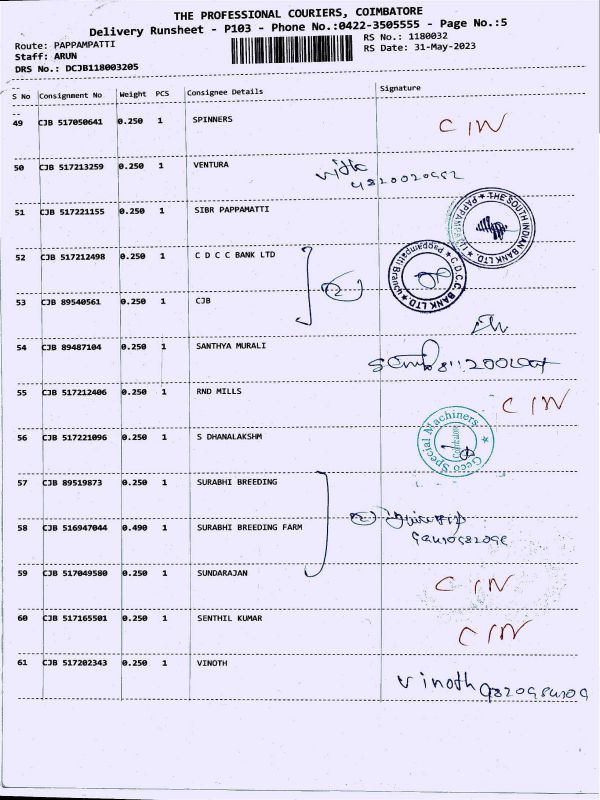 THE PROFESSIONAL COURIERS, COIMBATORE
Delivery Runsheet - P103 - Phone No.:0422-3505555 - Page No.:5
Route: PAPPAMPATTI RS No.: 1180032
Staff: ARUN RS Date: 31-May-2023
DRS No.: DCJB118003205
S No Consignment No Weight PCS Consignee Details Signature
49 CJB 517050641 0.250 1 SPINNERS CIN
50 CJB 517213259 0.250 1 VENTURA
51 CJB 517221155 0.250 1 SIBR PAPPAMATTI
THE SOUTH INDIAN BANK LTD. PAPPAMPATTI
52 CJB 517212498 0.250 1 C D C C BANK LTD
C.D.C.C. BANK LTD. Pappampatti Branch
53 CJB 89540561 0.250 1 CJB
54 CJB 89487104 0.250 1 SANTHYA MURALI
55 CJB 517212406 0.250 1 RND MILLS CIN
56 CJB 517221096 0.250 1 S DHANALAKSHM
Geco Special Machiners Coimbatore
57 CJB 89519873 0.250 1 SURABHI BREEDING
58 CJB 516947044 0.490 1 SURABHI BREEDING FARM
59 CJB 517049580 0.250 1 SUNDARAJAN CIN
60 CJB 517165501 0.250 1 SENTHIL KUMAR CIN
61 CJB 517202343 0.250 1 VINOTH Vinoth